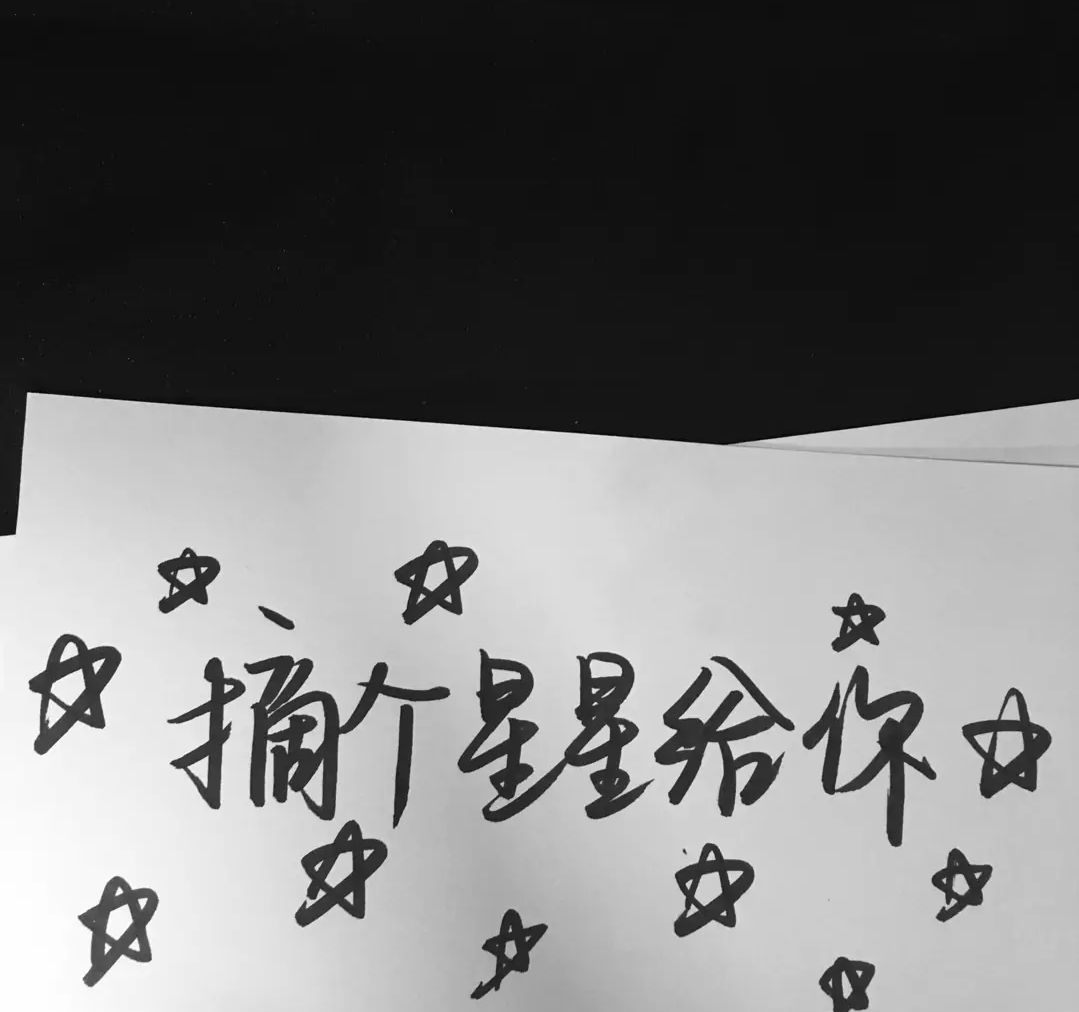 摘个星星给你